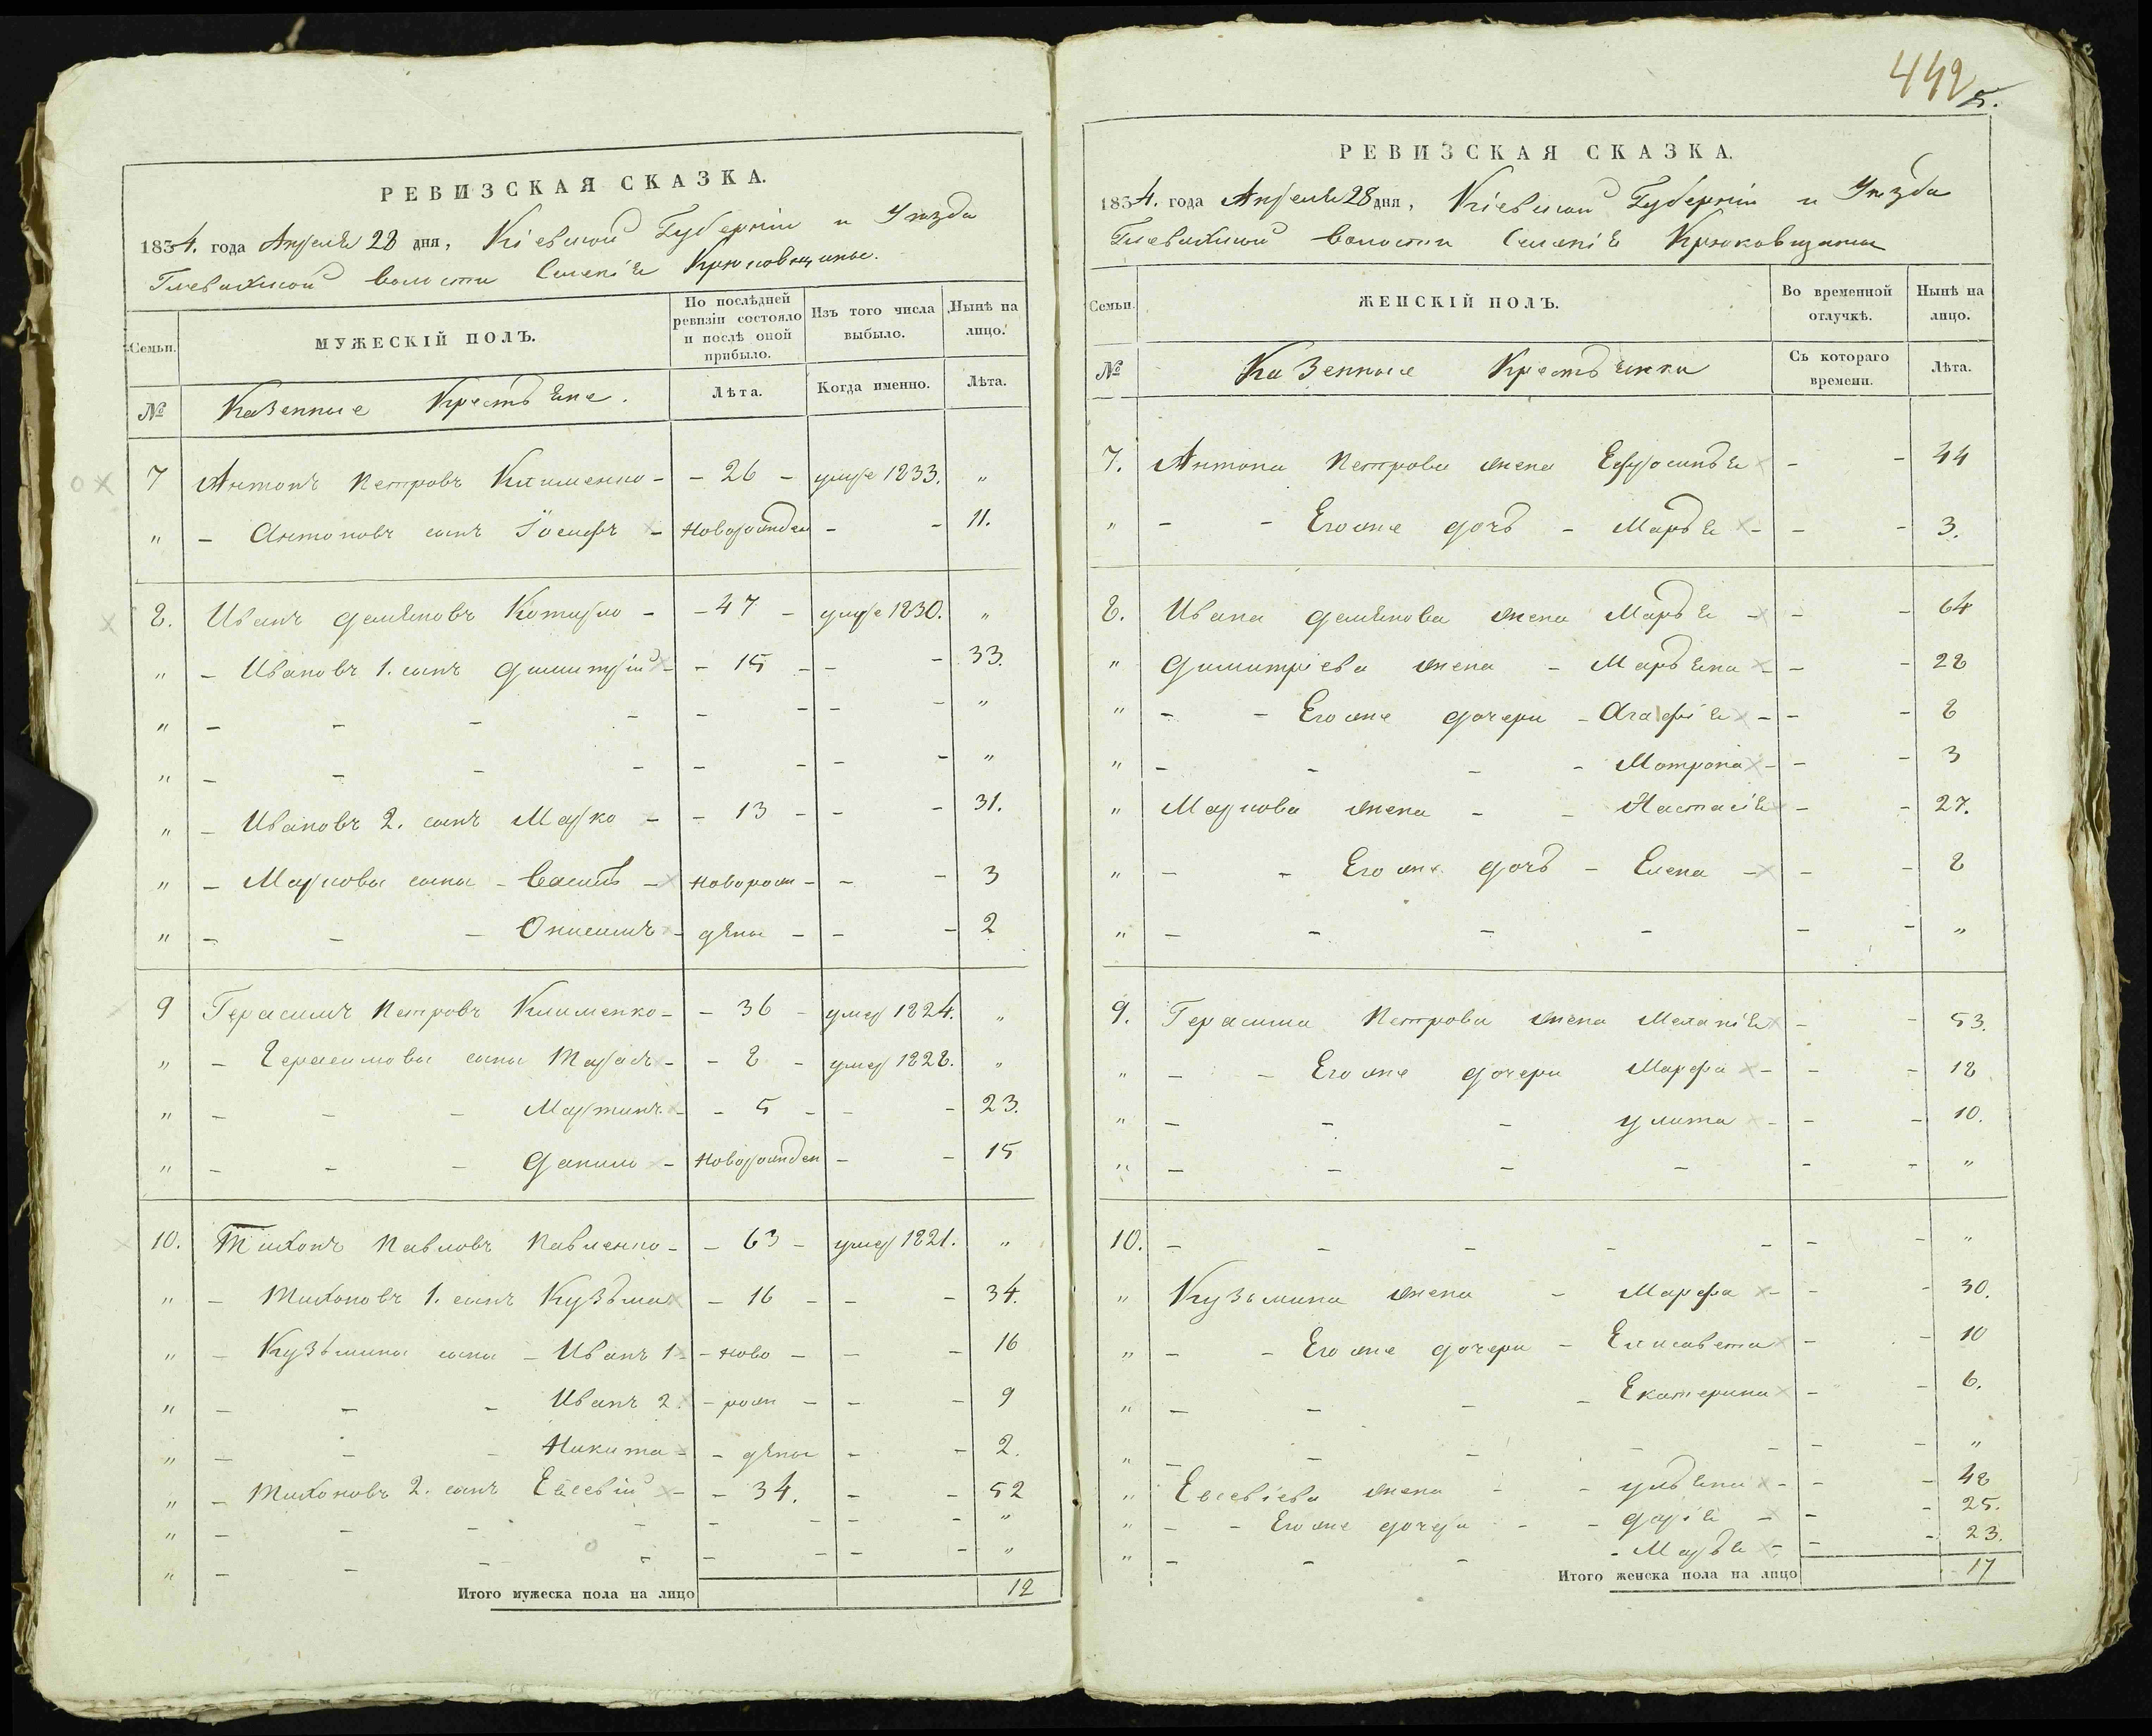 РЕВИЗСКАЯ СКАЗКА.
1834. года Апреля 28 дня, Кіевской Губерніи и Уѣзда
Глевахской волости Селенія Крюковщины.
Семьи. МУЖЕСКІЙ ПОЛЪ. По послѣдней ревизіи состояло и послѣ оной прибыло. Изъ того числа выбыло. Нынѣ на лицо.
№ Казенные Крестьяне. Лѣта. Когда именно. Лѣта.
7 Антонъ Петровъ Клименко - - 26 - умре 1833. "
" - Антоновъ сынъ Іосифъ - новорожден - - 11.
8. Иванъ Демяновъ - - 47 - умре 1830. "
" - Ивановъ 1. сынъ Димитрій - - 15 - - - 33.
" - - - - - - - - "
" - - - - - - - - "
" - Ивановъ 2. сынъ Марко - - 13 - - - 31.
" - Марковы сыны - Василь - новорож - - - 3
" - - - Онисимъ - дены - - - 2
9 Герасимъ Петровъ Клименко - - 36 - умер 1824. "
" - Герасимовы сыны Тарасъ - - 8 - умер 1828. "
" - - - Мартинъ - - 5 - - - 23.
" - - - Данило - новорожден - - 15
10. Тихонъ Павловъ Павленко - - 63 - умер 1821. "
" - Тихоновъ 1. сынъ Кузьма - 16 - - - 34.
" - Кузьмины сыны - Иванъ 1 - - ново - - - 16
" - - - Иванъ 2. - рож - - - 9
" - - - Никита - - дены - - 2.
" - Тихоновъ 2. сынъ Евсевій - - 34. - - 52
" - - - - - - - - "
" - - - - - - - - "
Итого мужеска пола на лицо 12
442
5.
РЕВИЗСКАЯ СКАЗКА.
1834. года Апреля 28 дня, Кіевской Губерніи и Уѣзда
Глевахской волости Селенія Крюковщины
Семьи. ЖЕНСКІЙ ПОЛЪ. Во временной отлучкѣ. Нынѣ на лицо.
№ Казенные Крестьянки Съ котораго времени. Лѣта.
7. Антона Петрова жена Ефросинья - - 44
" - - Его же дочь - Марья - - - 3.
8. Ивана Демянова жена Марья - - - 64
" Димитріева жена - Марьяна - - - 28
" - - Его же дочери - Агафія - - - 8
" - - - - Мотрона - - - 3
" Маркова жена - - Настасія - - 27.
" - - Его же дочь - Елена - - - 8
" - - - - - - "
9. Герасима Петрова жена Меланія - - 53.
" - - Его же дочери Марфа - - - 18
" - - - Улита - - - 10.
" - - - - - - "
10. - - - - - - - "
" Кузьмина жена - Марфа - - - 30.
" - - Его же дочери - Елисавета - - 10
" - - - - Екатерина - - 6.
" - - - - - - - "
" Евсевіева жена - - Ульяна - - - 48
" - - Его же дочери - - Дарія - - - 25.
" - - - - Марья - - - 23.
Итого женска пола на лицо 17